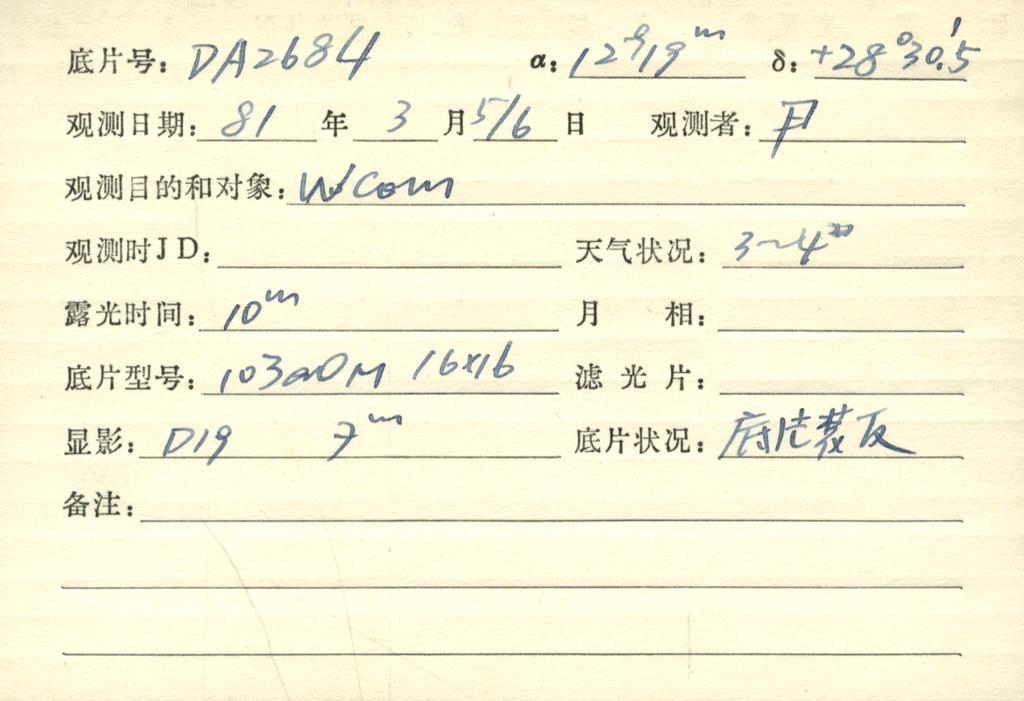 底片号: DA2684 α: 12ʰ19ᵐ δ: +28°30.′5
观测日期: 81 年 3 月 5/6 日 观测者:
观测目的和对象: W Com
观测时JD: 天气状况: 3~4
露光时间: 10ᵐ 月 相:
底片型号: 103aO M 16x16 滤光片:
显影: D19 7ᵐ 底片状况: 底片装反
备注: